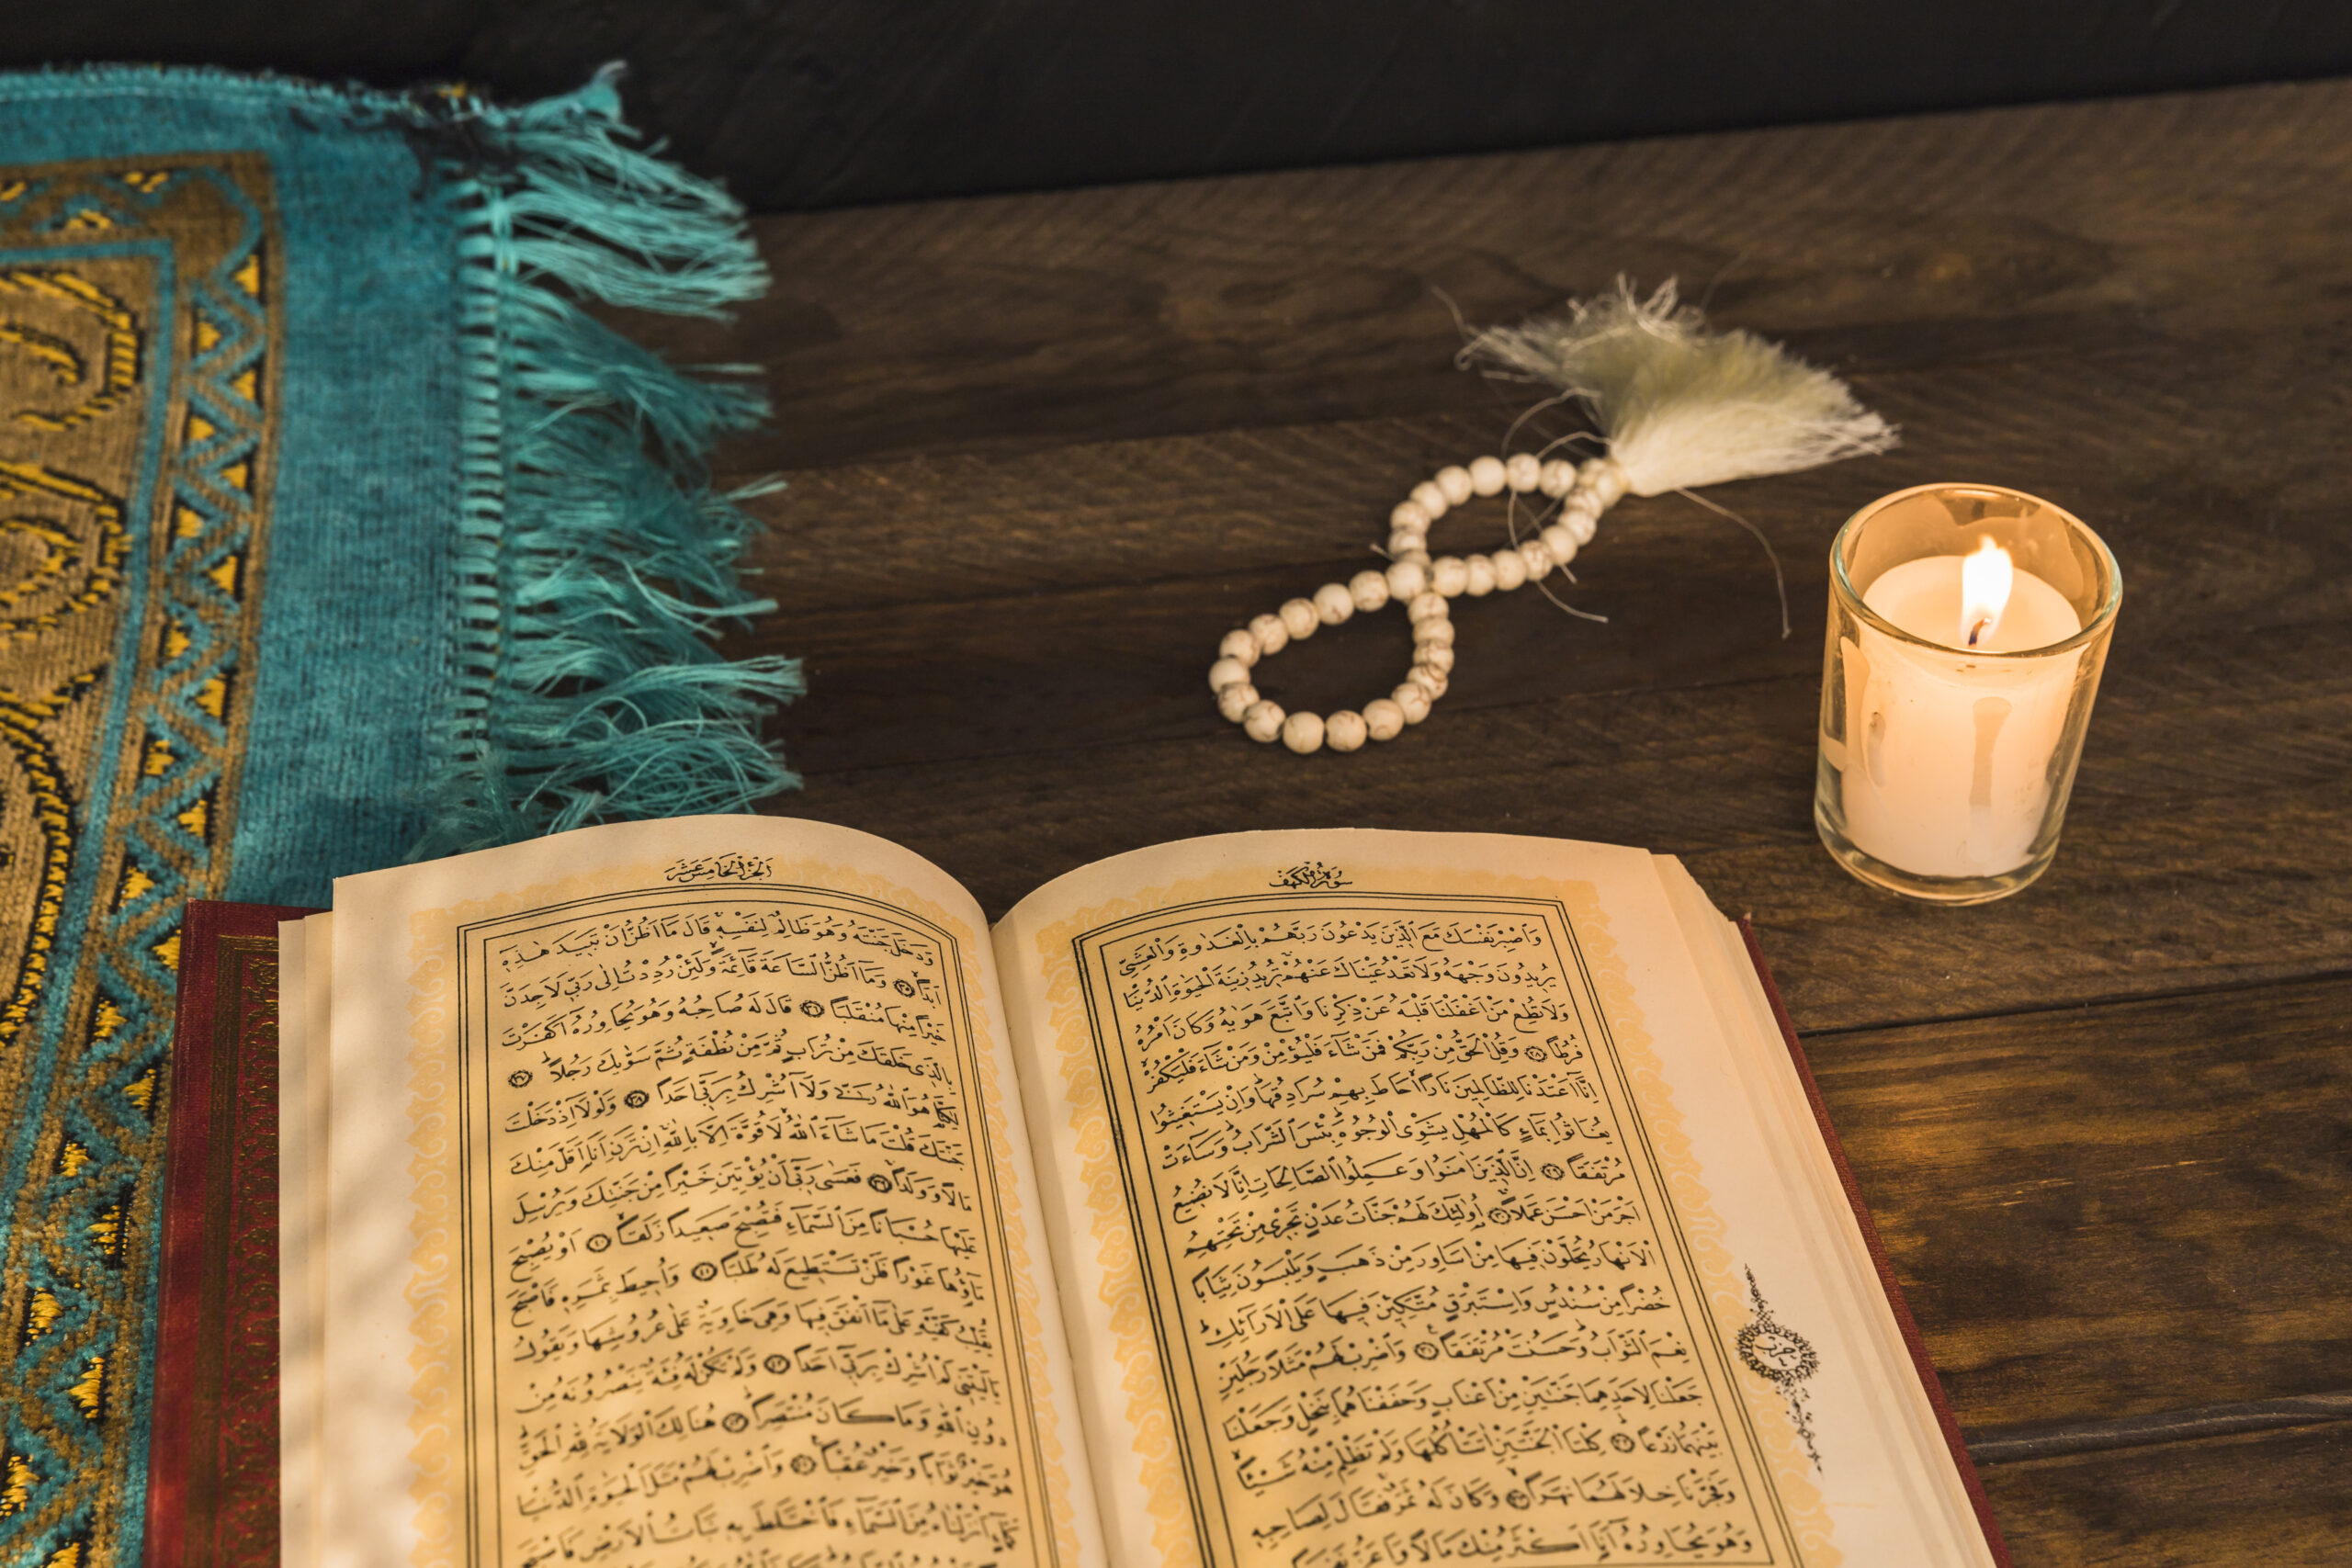 سورة الكهف
وَاصْبِرْ نَفْسَكَ مَعَ الَّذِينَ يَدْعُونَ رَبَّهُمْ بِالْغَدٰوةِ وَالْعَشِيِّ
يُرِيدُونَ وَجْهَهُ وَلَا تَعْدُ عَيْنَاكَ عَنْهُمْ تُرِيدُ زِينَةَ الْحَيٰوةِ الدُّنْيَا
وَلَا تُطِعْ مَنْ اَغْفَلْنَا قَلْبَهُ عَنْ ذِكْرِنَا وَاتَّبَعَ هَوٰيهُ وَكَانَ اَمْرُهُ
فُرُطًا ﴿٢٨﴾ وَقُلِ الْحَقُّ مِنْ رَبِّكُمْ فَمَنْ شَاءَ فَلْيُؤْمِنْ وَمَنْ شَاءَ فَلْيَكْفُرْ
اِنَّا اَعْتَدْنَا لِلظَّالِمِينَ نَارًا اَحَاطَ بِهِمْ سُرَادِقُهَا وَاِنْ يَسْتَغِيثُوا
يُغَاثُوا بِمَاءٍ كَالْمُهْلِ يَشْوِى الْوُجُوهَ بِئْسَ الشَّرَابُ وَسَاءَتْ
مُرْتَفَقًا ﴿٢٩﴾ اِنَّ الَّذِينَ اٰمَنُوا وَعَمِلُوا الصَّالِحَاتِ اِنَّا لَا نُضِيعُ
اَجْرَ مَنْ اَحْسَنَ عَمَلًا ﴿٣٠﴾ اُولٰئِكَ لَهُمْ جَنَّاتُ عَدْنٍ تَجْرِى مِنْ تَحْتِهِمُ
الْاَنْهَارُ يُحَلَّوْنَ فِيهَا مِنْ اَسَاوِرَ مِنْ ذَهَبٍ وَيَلْبَسُونَ ثِيَابًا
خُضْرًا مِنْ سُنْدُسٍ وَاِسْتَبْرَقٍ مُتَّكِئِينَ فِيهَا عَلَى الْاَرَائِكِ
نِعْمَ الثَّوَابُ وَحَسُنَتْ مُرْتَفَقًا ﴿٣١﴾ وَاضْرِبْ لَهُمْ مَثَلًا رَجُلَيْنِ
جَعَلْنَا لِاَحَدِهِمَا جَنَّتَيْنِ مِنْ اَعْنَابٍ وَحَفَفْنَاهُمَا بِنَخْلٍ وَجَعَلْنَا
بَيْنَهُمَا زَرْعًا ﴿٣٢﴾ كِلْتَا الْجَنَّتَيْنِ اٰتَتْ اُكُلَهَا وَلَمْ تَظْلِمْ مِنْهُ شَيْئًا
وَفَجَّرْنَا خِلَالَهُمَا نَهَرًا ﴿٣٣﴾ وَكَانَ لَهُ ثَمَرٌ فَقَالَ لِصَاحِبِهِ
وَهُوَ يُحَاوِرُهُ اَنَا اَكْثَرُ مِنْكَ مَالًا وَاَعَزُّ نَفَرًا
حزب
الجزء الخامس عشر
وَدَخَلَ جَنَّتَهُ وَهُوَ ظَالِمٌ لِنَفْسِهِ قَالَ مَا اَظُنُّ اَنْ تَبِيدَ هٰذِهِ
اَبَدًا ﴿٣٥﴾ وَمَا اَظُنُّ السَّاعَةَ قَائِمَةً وَلَئِنْ رُدِدْتُ اِلٰى رَبِّى لَاَجِدَنَّ
خَيْرًا مِنْهَا مُنْقَلَبًا ﴿٣٦﴾ قَالَ لَهُ صَاحِبُهُ وَهُوَ يُحَاوِرُهُ اَكَفَرْتَ
بِالَّذِى خَلَقَكَ مِنْ تُرَابٍ ثُمَّ مِنْ نُطْفَةٍ ثُمَّ سَوّٰيكَ رَجُلًا ﴿٣٧﴾
لٰكِنَّا هُوَ اللّٰهُ رَبِّى وَلَا اُشْرِكُ بِرَبِّى اَحَدًا ﴿٣٨﴾ وَلَوْلَا اِذْ دَخَلْتَ
جَنَّتَكَ قُلْتَ مَا شَاءَ اللّٰهُ لَا قُوَّةَ اِلَّا بِاللّٰهِ اِنْ تَرَنِ اَنَا اَقَلَّ مِنْكَ
مَالًا وَوَلَدًا ﴿٣٩﴾ فَعَسٰى رَبِّى اَنْ يُؤْتِيَنِ خَيْرًا مِنْ جَنَّتِكَ وَيُرْسِلَ
عَلَيْهَا حُسْبَانًا مِنَ السَّمَاءِ فَتُصْبِحَ صَعِيدًا زَلَقًا ﴿٤٠﴾ اَوْ يُصْبِحَ
مَاؤُهَا غَوْرًا فَلَنْ تَسْتَطِيعَ لَهُ طَلَبًا ﴿٤١﴾ وَاُحِيطَ بِثَمَرِهِ فَاَصْبَحَ
يُقَلِّبُ كَفَّيْهِ عَلٰى مَا اَنْفَقَ فِيهَا وَهِىَ خَاوِيَةٌ عَلٰى عُرُوشِهَا وَيَقُولُ
يَا لَيْتَنِى لَمْ اُشْرِكْ بِرَبِّى اَحَدًا ﴿٤٢﴾ وَلَمْ تَكُنْ لَهُ فِئَةٌ يَنْصُرُونَهُ مِنْ
دُونِ اللّٰهِ وَمَا كَانَ مُنْتَصِرًا ﴿٤٣﴾ هُنَالِكَ الْوَلَايَةُ لِلّٰهِ الْحَقِّ
هُوَ خَيْرٌ ثَوَابًا وَخَيْرٌ عُقْبًا ﴿٤٤﴾ وَاضْرِبْ لَهُمْ مَثَلَ الْحَيٰوةِ الدُّنْيَا
كَمَاءٍ اَنْزَلْنَاهُ مِنَ السَّمَاءِ فَاخْتَلَطَ بِهِ نَبَاتُ الْاَرْضِ فَاَصْبَحَ